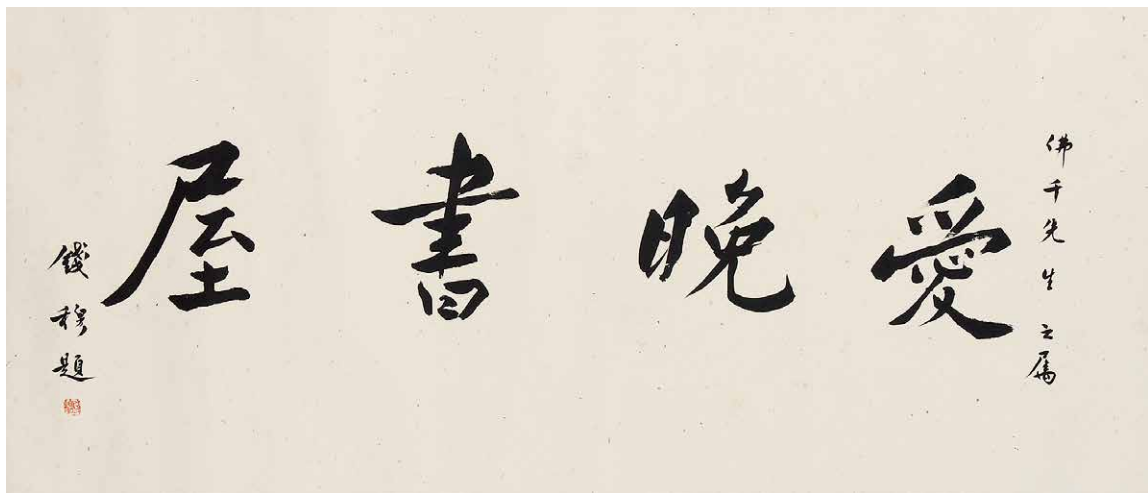 佛千先生之属
愛晚書屋
錢穆題